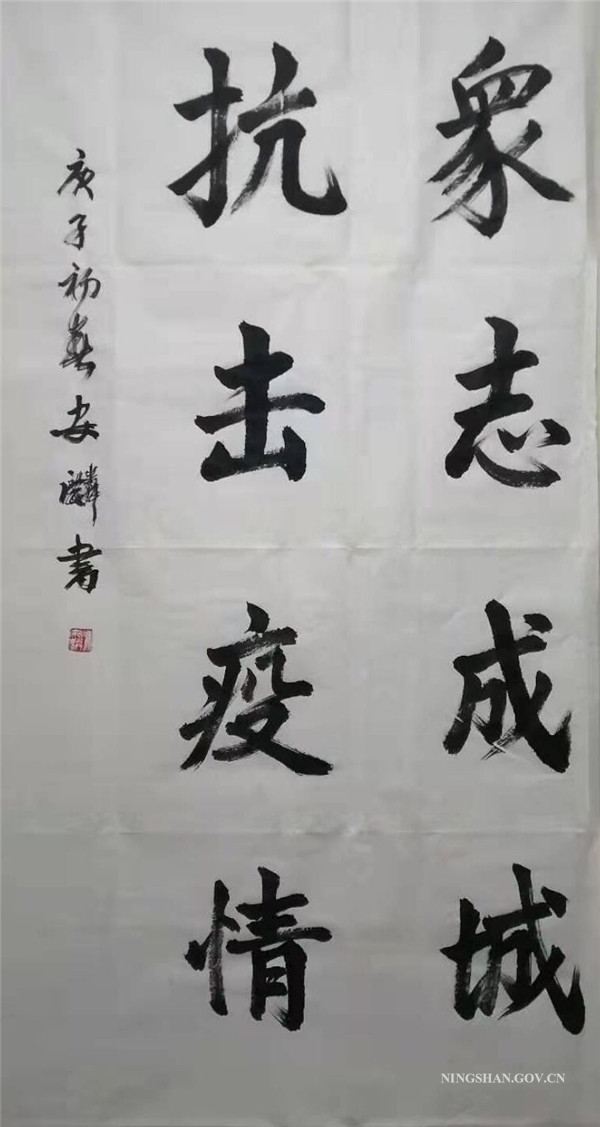 眾志成城
抗击疫情
庚子初春安麟书
NINGSHAN.GOV.CN